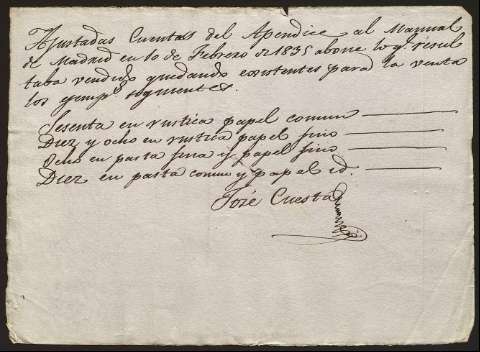 Ajustadas Cuentas del Apendice al Manual
de Madrid en 10 de Febrero de 1835 abone lo q.e resul
taba vendido quedando existentes para la venta
los ejemp.s siguientes.
Sesenta en rustica papel comun
Diez y ocho en rustica papel fino
Ocho en pasta fina y papel fino
Diez en pasta comun y papel id.
José Cuesta